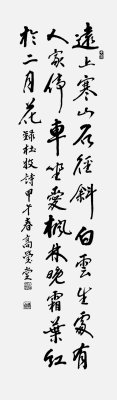 遠上寒山石徑斜白雲生處有
人家停車坐愛楓林晚霜葉紅
於二月花錄杜牧詩甲午春高瑩堂